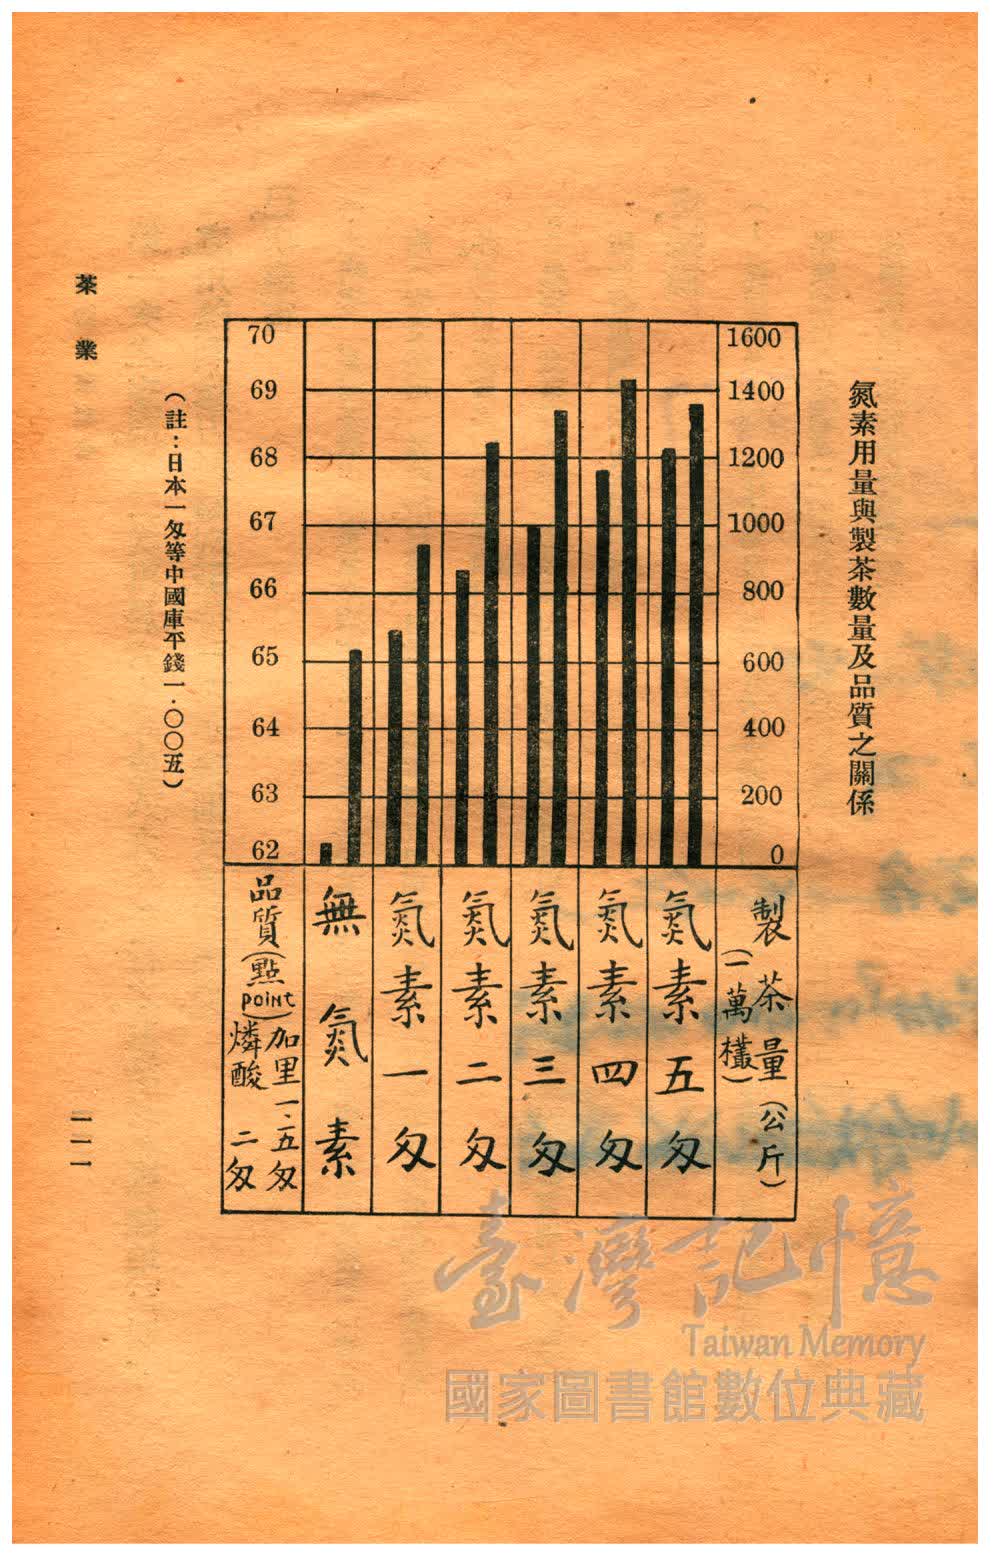 氮素用量與製茶數量及品質之關係
70
69
68
67
66
65
64
63
62
1600
1400
1200
1000
800
600
400
200
0
製茶量(公斤)
(一萬欉)
氮素五匁
氮素四匁
氮素三匁
氮素二匁
氮素一匁
無氮素
品質(點point)
加里一.五匁
燐酸 二匁
(註:日本一匁等中國庫平錢一.〇〇五)
茶業
一一一
臺灣記憶
Taiwan Memory
國家圖書館數位典藏